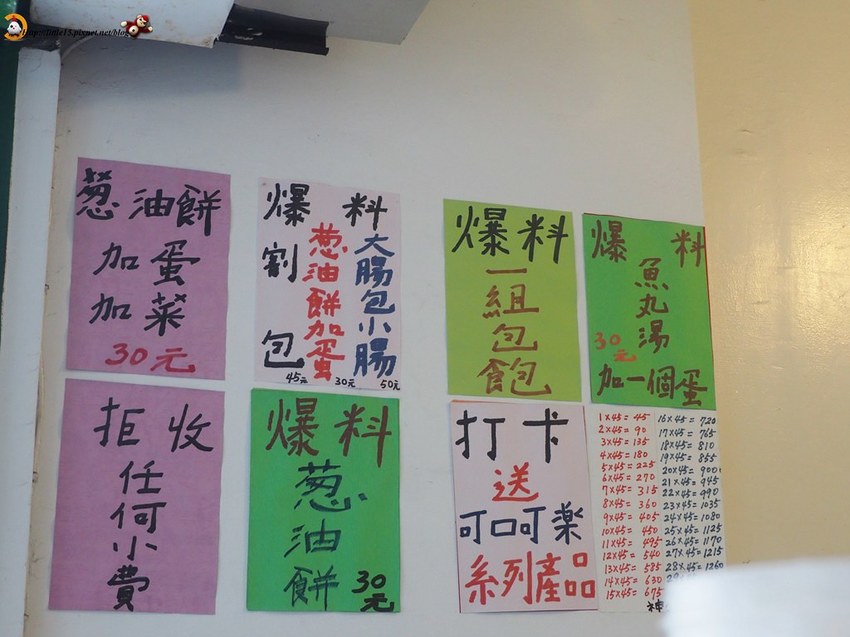 http://little15.pixnet.net/blog
葱油餅
加蛋
加菜
30元
爆料
割包
45元
葱油餅加蛋
30元
大腸包小腸
50元
爆料
一組包飽
爆料
魚丸湯
30元
加一個蛋
拒收
任何小費
爆料
葱油餅
30元
打卡
送
可口可楽
系列產品
1×45=45
2×45=90
3×45=135
4×45=180
5×45=225
6×45=270
7×45=315
8×45=360
9×45=405
10×45=450
11×45=495
12×45=540
13×45=585
14×45=630
15×45=675
16×45=720
17×45=765
18×45=810
19×45=855
20×45=900
21×45=945
22×45=990
23×45=1035
24×45=1080
25×45=1125
26×45=1170
27×45=1215
28×45=1260